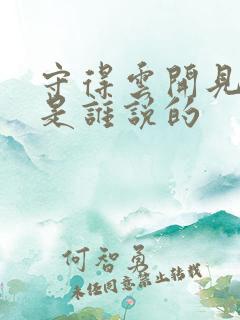 守得雲開見
是誰說的
何智勇
未经同意禁止转载